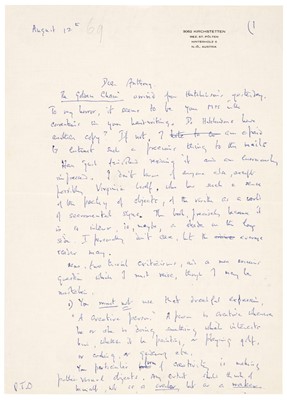 August 12th 69
(1
3062 KIRCHSTETTEN
BEZ. ST. PÖLTEN
HINTERHOLZ 6
N.-Ö. AUSTRIA
Dear Anthony,
The Golden Chain arrived from Hutchinson's yesterday.
To my horror, it seems to be your one with
corrections in your handwriting. Do Hutchinsons have
another copy? If not, I am afraid
to entrust such a precious thing to the mails
Have just finished reading it and am enormously
impressed. I don't know of anyone else, except
possibly Virginia Woolf, who has such a sense
of the of objects, of the world as a world
of sacramental signs. The book, precisely because it
is so, is, maybe, a shade on the long
side. I personally don't care, but the average
reader may.
Now, two trivial criticisms, and a more serious
question which I must raise, though I may be
mistaken.
1) You must not use that dreadful expression,
"A creative person". A person is creative whenever
he or she is doing something which interests
him, whether it be painting, or playing golf,
or cooking, or gardening etc.
Your particular of creativity is making
visual objects. Any artist should think of
himself, not as a creator, but as a maker
P.T.O